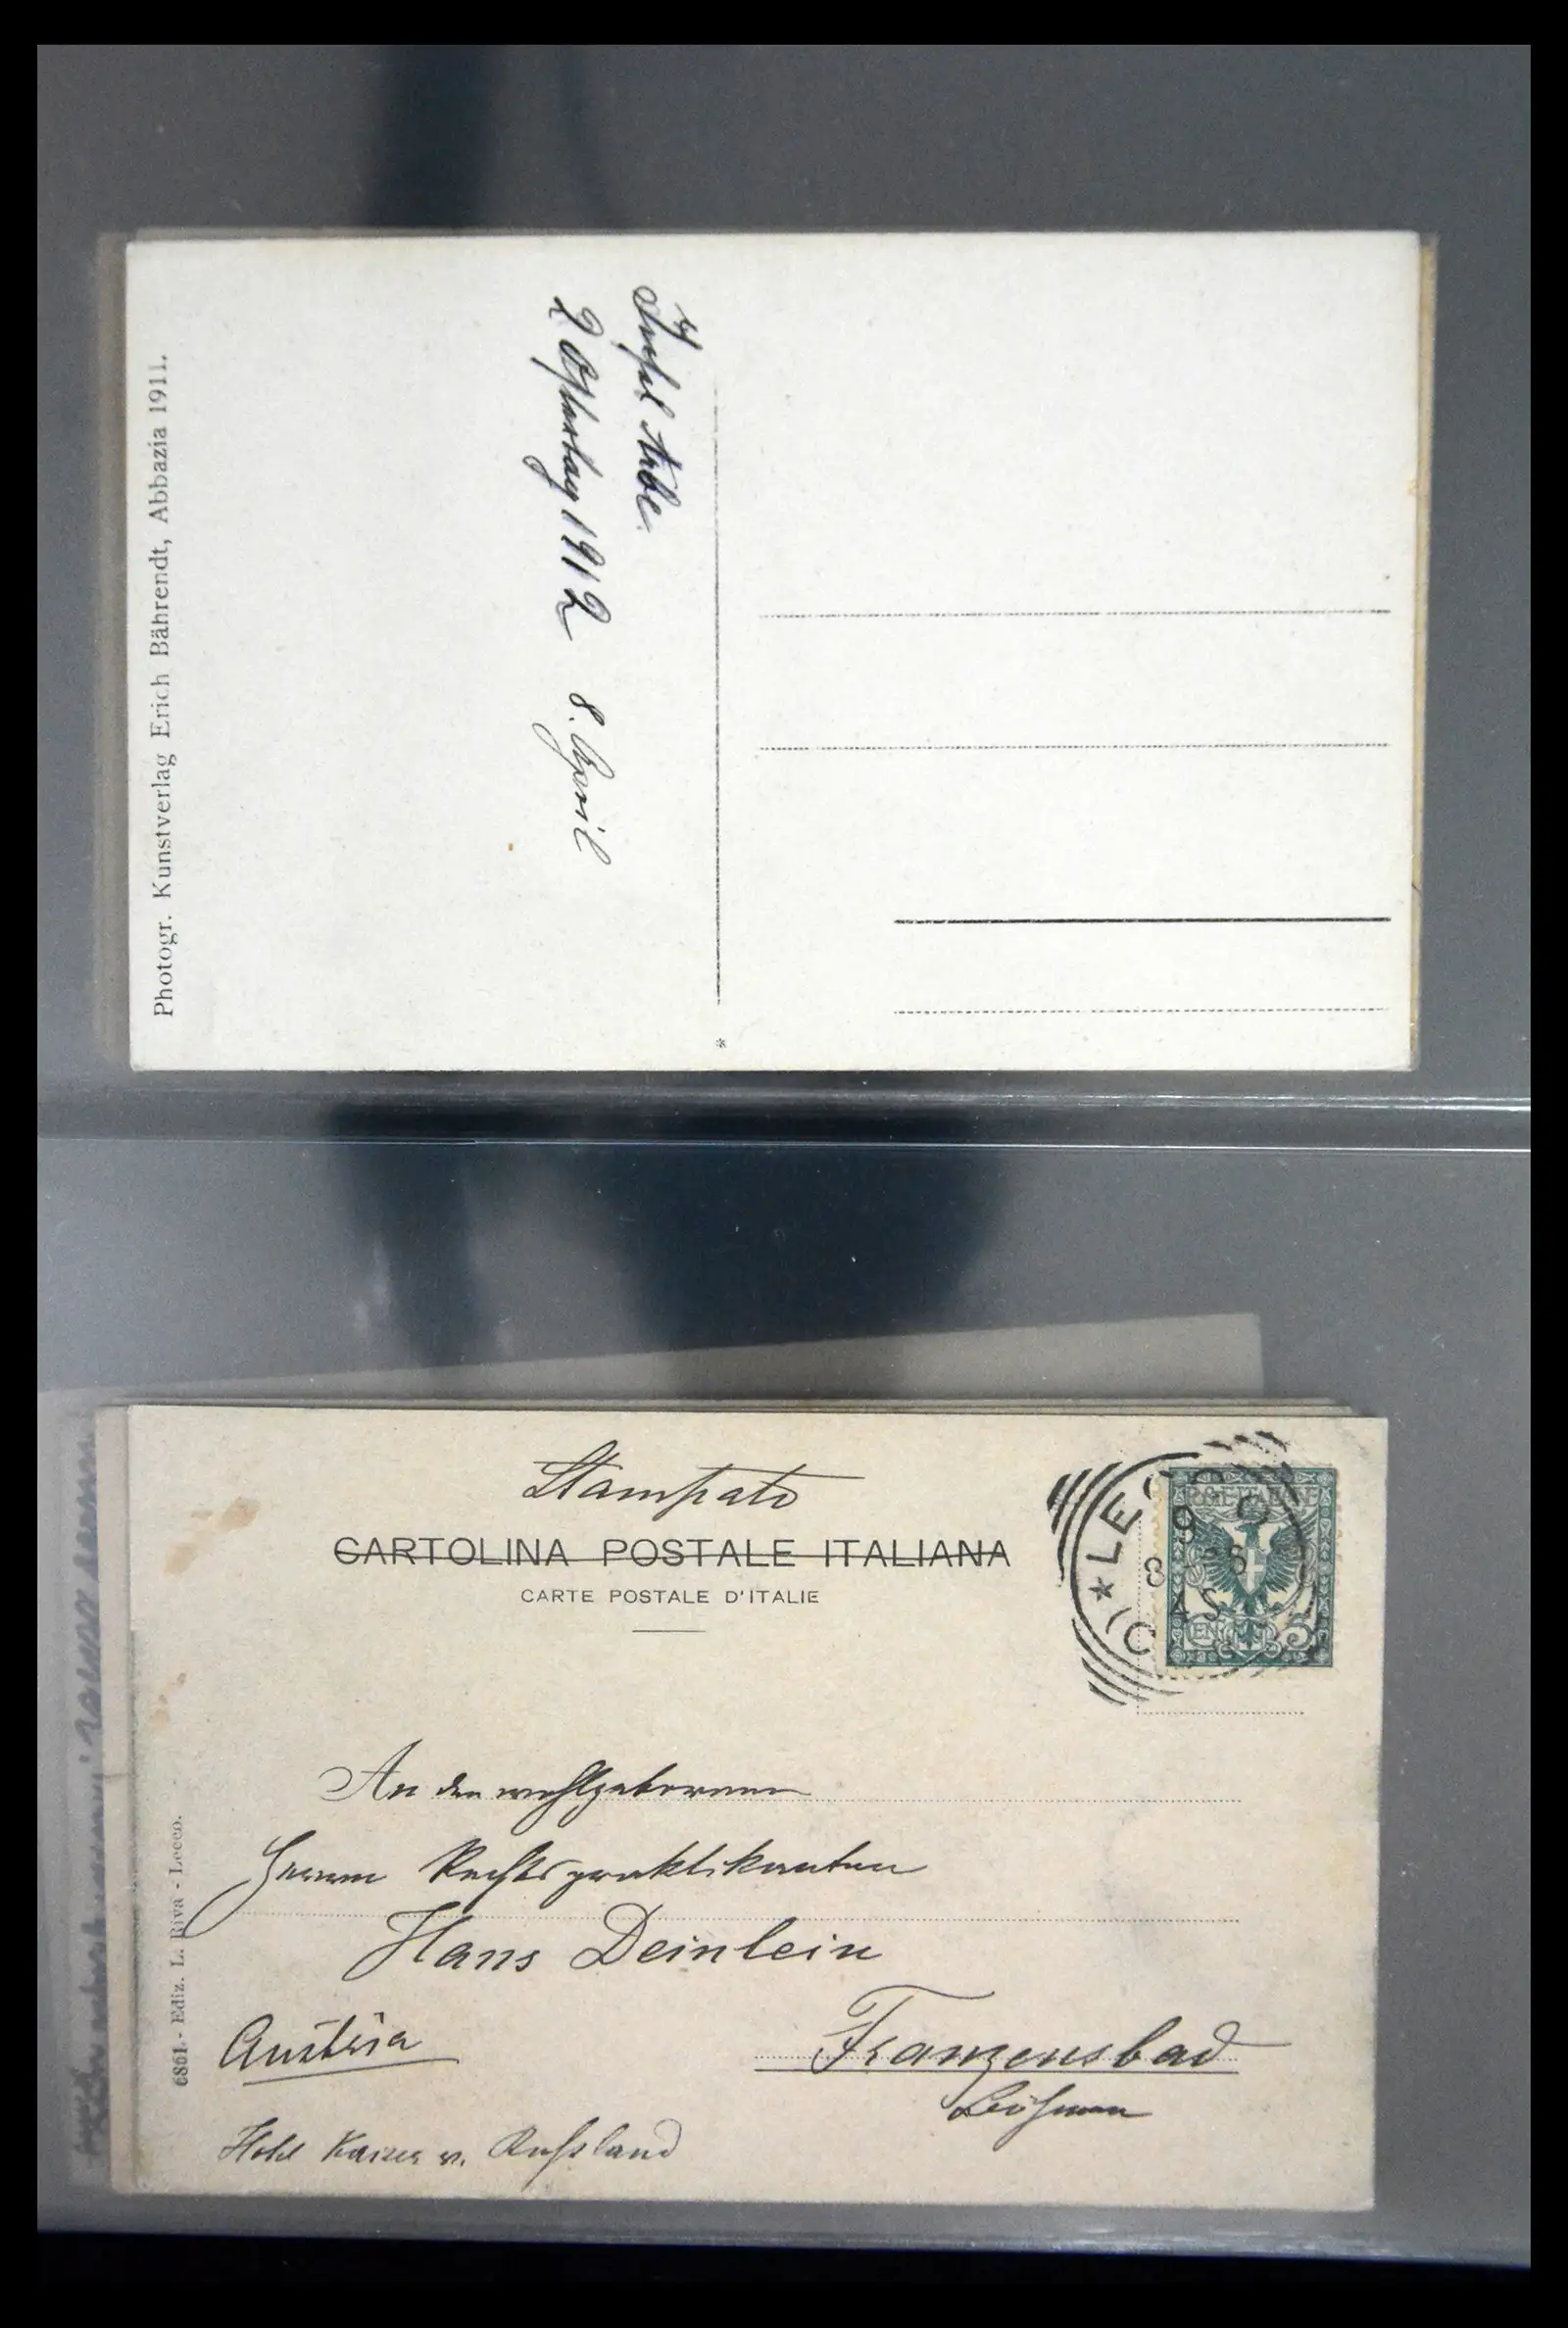 Photogr. Kunstverlag Erich Bährendt, Abbazia 1911.
Insel Arbe
2 Ostertag 1912 8. April
*
Stampato
CARTOLINA POSTALE ITALIANA
CARTE POSTALE D'ITALIE
* LECCO
9
8
(C
An den wohlgeborenen
Herrn Rechtspraktikanten
Hans Deinlein
Austria
Franzensbad
Böhmen
Hotel Kaiser v. Russland
6861.- Ediz. L. Riva - Lecco.